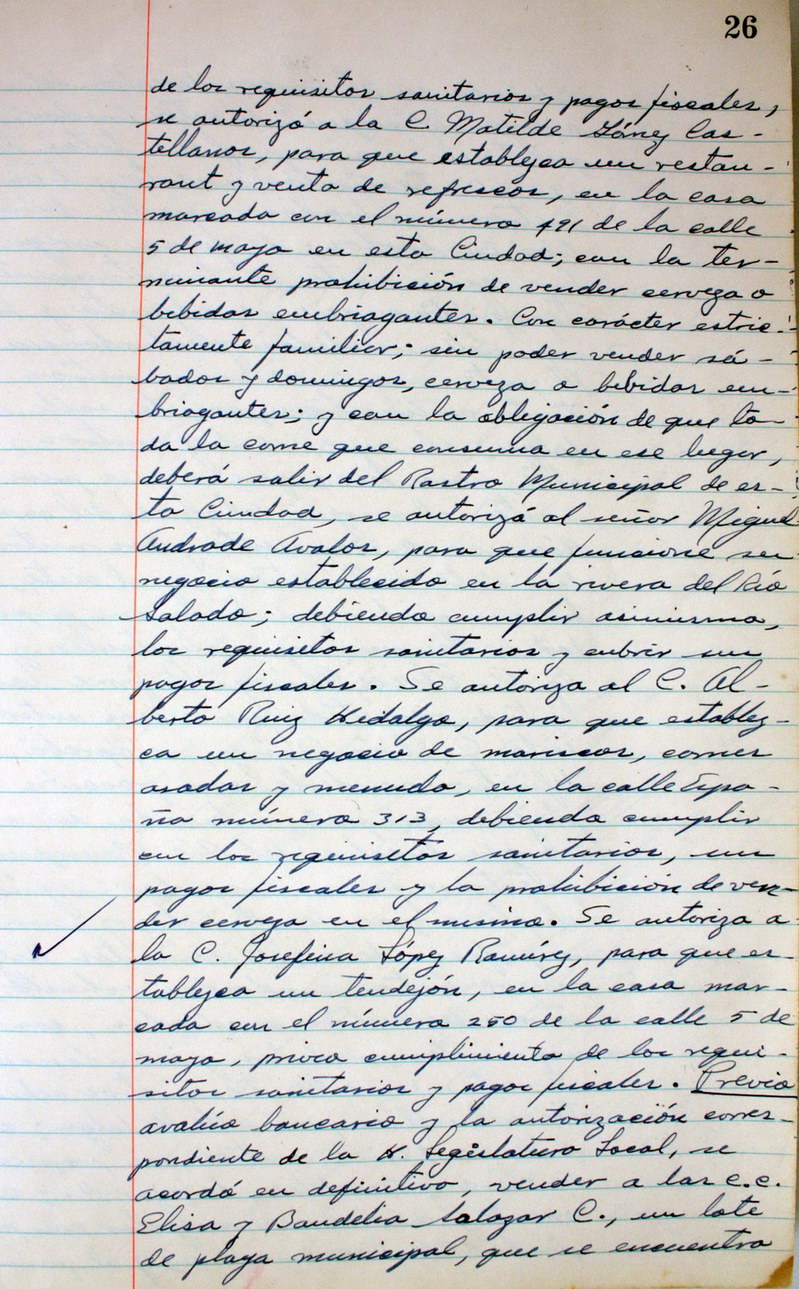 26
de los requisitos sanitarios y pagos fiscales,
se autorizó a la C. Matilde Gómez Cas-
tellanos, para que establezca un restau-
rant y venta de refrescos, en la casa
marcada con el número 491 de la calle
5 de mayo en esta Ciudad; con la ter-
minante prohibición de vender cerveza o
bebidas embriagantes. Con carácter estric-
tamente familiar; sin poder vender sá-
bados y domingos, cerveza o bebidas em-
briagantes; y con la obligación de que to-
da la carne que consuma en ese lugar,
deberá salir del Rastro Municipal de es-
ta Ciudad, se autorizó al señor Miguel
Andrade Avalos, para que funcione su
negocio establecido en la rivera del Río
Salado; debiendo cumplir asimismo,
los requisitos sanitarios y cubrir sus
pagos fiscales. Se autoriza al C. Al-
berto Ruiz Hidalgo, para que establez-
ca un negocio de mariscos, carnes
asadas y menudo, en la calle Espa-
ña número 313, debiendo cumplir
con los requisitos sanitarios, sus
pagos fiscales y la prohibición de ven-
der cerveza en el mismo. Se autoriza a
la C. Josefina López Ramírez, para que es-
tablezca un tendejón, en la casa mar-
cada con el número 250 de la calle 5 de
mayo, previo cumplimiento de los requi-
sitos sanitarios y pagos fiscales. Previo
avalúo bancario y la autorización corres-
pondiente de la H. Legislatura Local, se
acordó en definitiva, vender a las C.C.
Elisa y Baudelia Salazar C., un lote
de playa municipal, que se encuentra